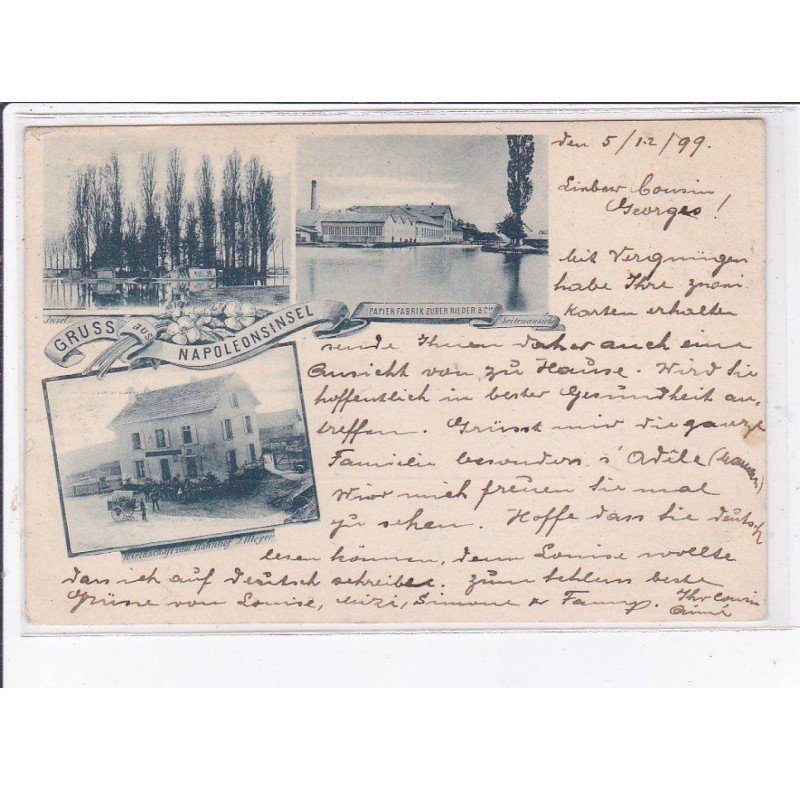 Insel
PAPIER FABRIK ZUBER RIEDER & Cie
Seitenansicht
GRUSS aus NAPOLEONSINSEL
Wirthschaft zum Bahnhof J. Meyer
den 5/12/99.
Lieber Cousin
Georges!
Mit Vergnügen
habe Ihre zwei
Karten erhalten
sende Ihnen daher auch eine
Ansicht von zu Hause. Wird Sie
hoffentlich in bester Gesundheit an-
treffen. Grüsst mir die ganze
Familie besonders s' Odile
Wir mich freuen Sie mal
zu sehen. Hoffe dass Sie deutsch
lesen können, denn Louise wollte
dass ich auf Deutsch schreibe. Zum Schluss beste
Grüsse von Louise, Mizi, Simone & Fanny. Ihr Cousin
Aimé